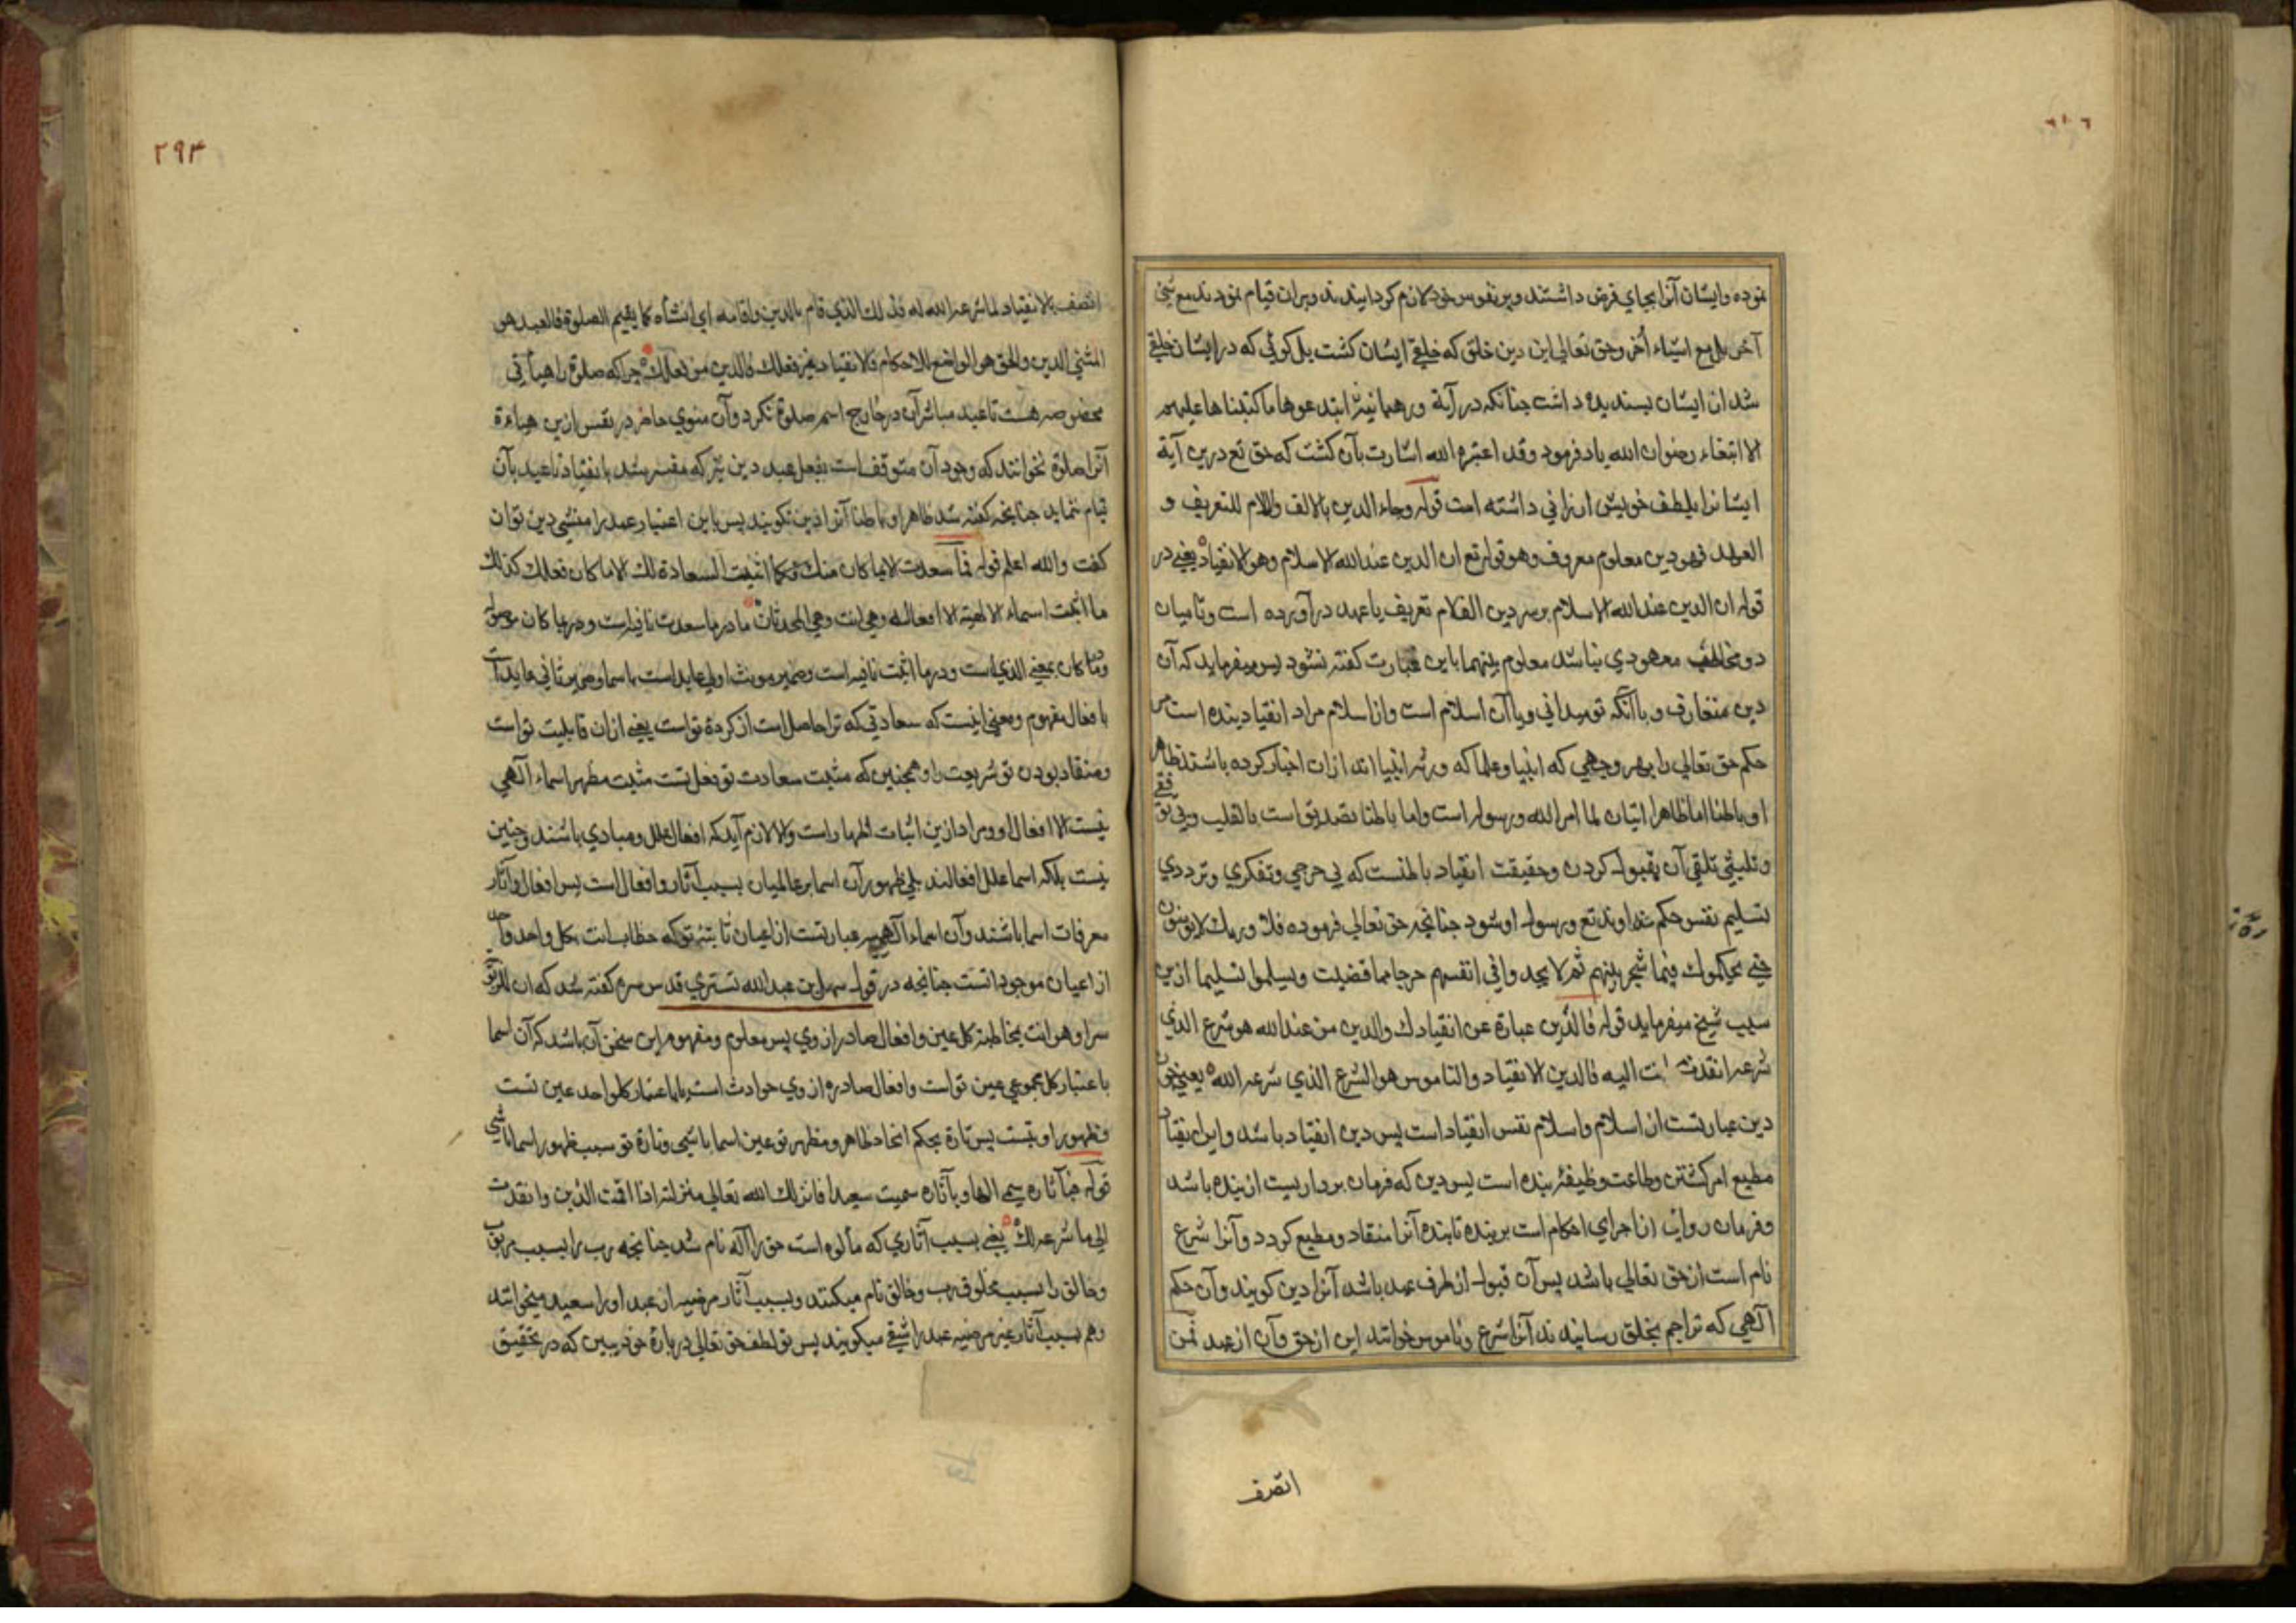 نموده وایشان آنرا بجای فرض داشتند وبر نفوس خود لازم کردانیدند وبران قیام نمودند مع شئ
آخر بل مع اشیاء أخر وحق تعالی این دین خلق که خلقے ایشان کشت بل کوئی که در ایشان خلقے
شد از ایشان پسندیده داشت چنانکه در آیة ورهبانیة ابتدعوها ما کتبناها علیهم
الا ابتغاء رضوان الله یاد فرمود وقد اعتبره الله اشارت بآن کشت که حق تع درین آیة
ایشانرا بلطف خویش ارزانی داشته است قوله وجاء الدین بالالف واللام للتعریف و
العهد فهو دین معلوم معروف وهو قوله تع ان الدین عند الله الاسلام وهو الانقیاد یعنے در
قوله ان الدین عند الله الاسلام بر سر دین الف لام تعریف یا عهد در آورده است وتا میان
دو مخاطب معهودی نباشد معلوم بینهما باین عبارت کفته نشود پس میفرماید که آن
دین متعارف وبا آنکه تو میدانی وبا آن اسلام است واز اسلام مراد انقیاد بنده است مر
حکم حق تعالی را بهر وجهی که انبیا وعلما که ورثه انبیا اند ازان اخبار کرده باشند ظاهر
او باطنا اما ظاهرا اتیان لما امر الله ورسوله است واما باطنا تصدیق است بالقلب وبی توقفے
وتلبثی تلقی آن بقبول کردن وحقیقت انقیاد باطنست که بی حرجی وتفکری وترددی
تسلیم نفس حکم خداوند تع ورسول او شود چنانچه حق تعالی فرموده فلا وربك لا یؤمنون
حتے یحکموك فیما شجر بینهم ثم لا یجدوا فی انفسهم حرجا مما قضیت ویسلموا تسلیما ازین
سبب شیخ میفرماید قوله فالدین عبارة عن انقیادك والدین من عند الله هو شرع الذی
شرعه انقدت انت الیه فالدین الانقیاد والناموس هو الشرع الذی شرعه الله یعنی چون
دین عبارتست از اسلام واسلام نفس انقیاد است پس دین انقیاد باشد واین انقیاد
مطیع امر کشتن وطاعت وظیفهٔ بنده است پس دین که فرمان برداریست از بنده باشد
وفرمان روایی از اجرای احکام است بر بنده تا بنده آنرا منقاد ومطیع کردد وآنرا شرع
نام است از حق تعالی باشد پس آن قبول از طرف عبد باشد آنرا دین کویند وآن حکم
آلهی که تراجم بخلق رسانیدند آنرا شرع وناموس خوانند این از حق وآن از عبد فمن
اتصف
٢٩٣
اتصف بالانقیاد لما شرعه الله له فذلك الذی قام بالدین واقامه ای انشأه کما یقیم الصلوة فالعبد هو
المنشئ للدین والحق هو الواضع للاحکام فالانقیاد عین فعلك فالدین من فعلك چرا که صلوة را هیأتی
مخصوصه هست تا عبد مباشر آن در خارج اسم صلوة نکرد وآن منوی حاضر در نفس ازین هیاءة
آنرا صلوة نخوانند که وجود آن متوقف است بفعل عبد دین نیز که مفسر شد بانقیاد تا عبد بآن
قیام ننماید چنانچه کفته شد ظاهرا وباطنا آنرا دین نکویند پس باین اعتبار عبد را منشی دین توان
کفت والله اعلم قوله فما سعدت الا بما کان منك فکما اثبت السعادة لك الا ما کان فعلك کذلك
ما اثبت اسماء الالهیة الا افعاله وهی انت وهی المحدثات ما در ما سعدت نافیه است ودر بما کان موصوله
وما کان بمعنے الذی است ودر ما اثبت نافیه است وضمیر مونث اولی عاید است باسما وضمیر ثانی عاید است
بافعال مفهوم ومعنی اینست که سعادتی که ترا حاصل است از کردهٔ تو است یعنے ازان قابلیت تو است
ومنقاد بودن تو شریعت را وهمچنین که مثبت سعادت تو فعل تست مثبت مظهر اسماء آلهی
نیست الا افعال او ومراد ازین اثبات اظهار است والا لازم آید که افعال علل ومبادی باشند وچنین
نیست بلکه اسما علل افعالند بلی ظهور آن اسما بر عالمیان بسبب آثار وافعال است پس افعال وآثار
معرفات اسما باشند وآن اسماء آلهیه عبارتست از اعیان ثابتهٔ تو که خطاب انت بکل واحد واحد
از اعیان موجوداتست چنانچه در قول سهل بن عبدالله تستری قدس سره کفته شد که ان للربوبیة
سرا وهو انت یخاطب کل عین وافعال صادر از وی پس معلوم ومفهوم این سخن آن باشد که آن اسما
باعتبار کل مجموعی عین تو است وافعال صادره از وی حوادث است باعتبار کل واحد عین تست
وظهور او بتست پس تارة بحکم اتحاد ظاهر ومظهر تو عین اسما باشی وتارة تو سبب ظهور اسما باشی
قوله فبآثاره سمی الها وبآثارك سمیت سعیدا فانزلك الله تعالی منزلته اذا اقمت الدین وانقدت
الی ما شرعه لك یعنے بسبب آثاری که مألوه است حق را آله نام شد چنانچه رب را بسبب مربوب
وخالق را بسبب مخلوق رب وخالق نام میکنند وبسبب آثار مرضیه از عبد اورا سعید میخوانند
وهم بسبب آثار غیر مرضیه عبد را شقی میکویند پس تو لطف حق تعالی در بارهٔ خود ببین که در تحقیق